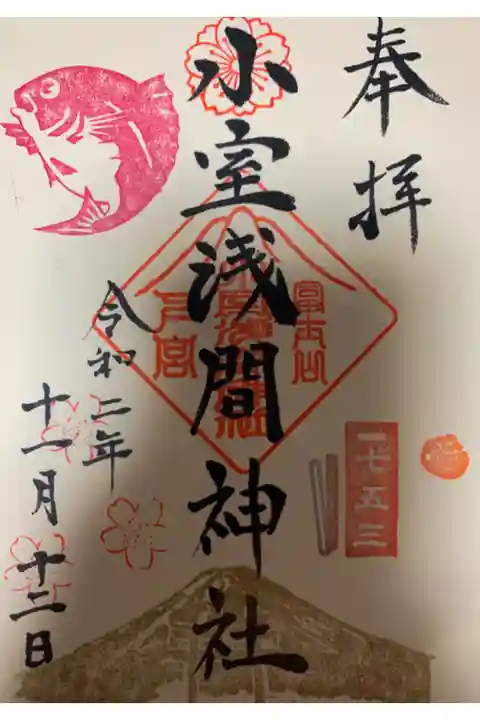 奉拝
小室浅間神社
富士山
下宮
七五三
令和二年
十一月十二日